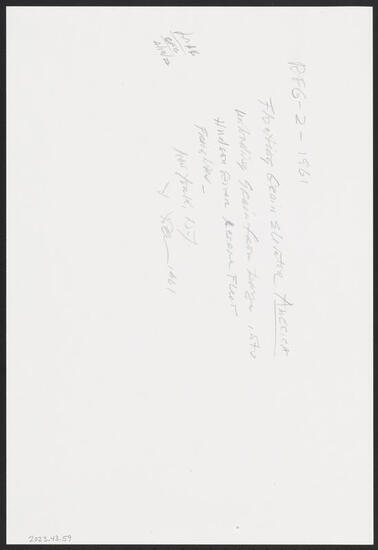 RFG-2-1961
Floating Grain Elevator AMERICA
unloading grain from barge into
Hudson River Reserve Fleet
New York, N.Y.
1961
2023.43.59